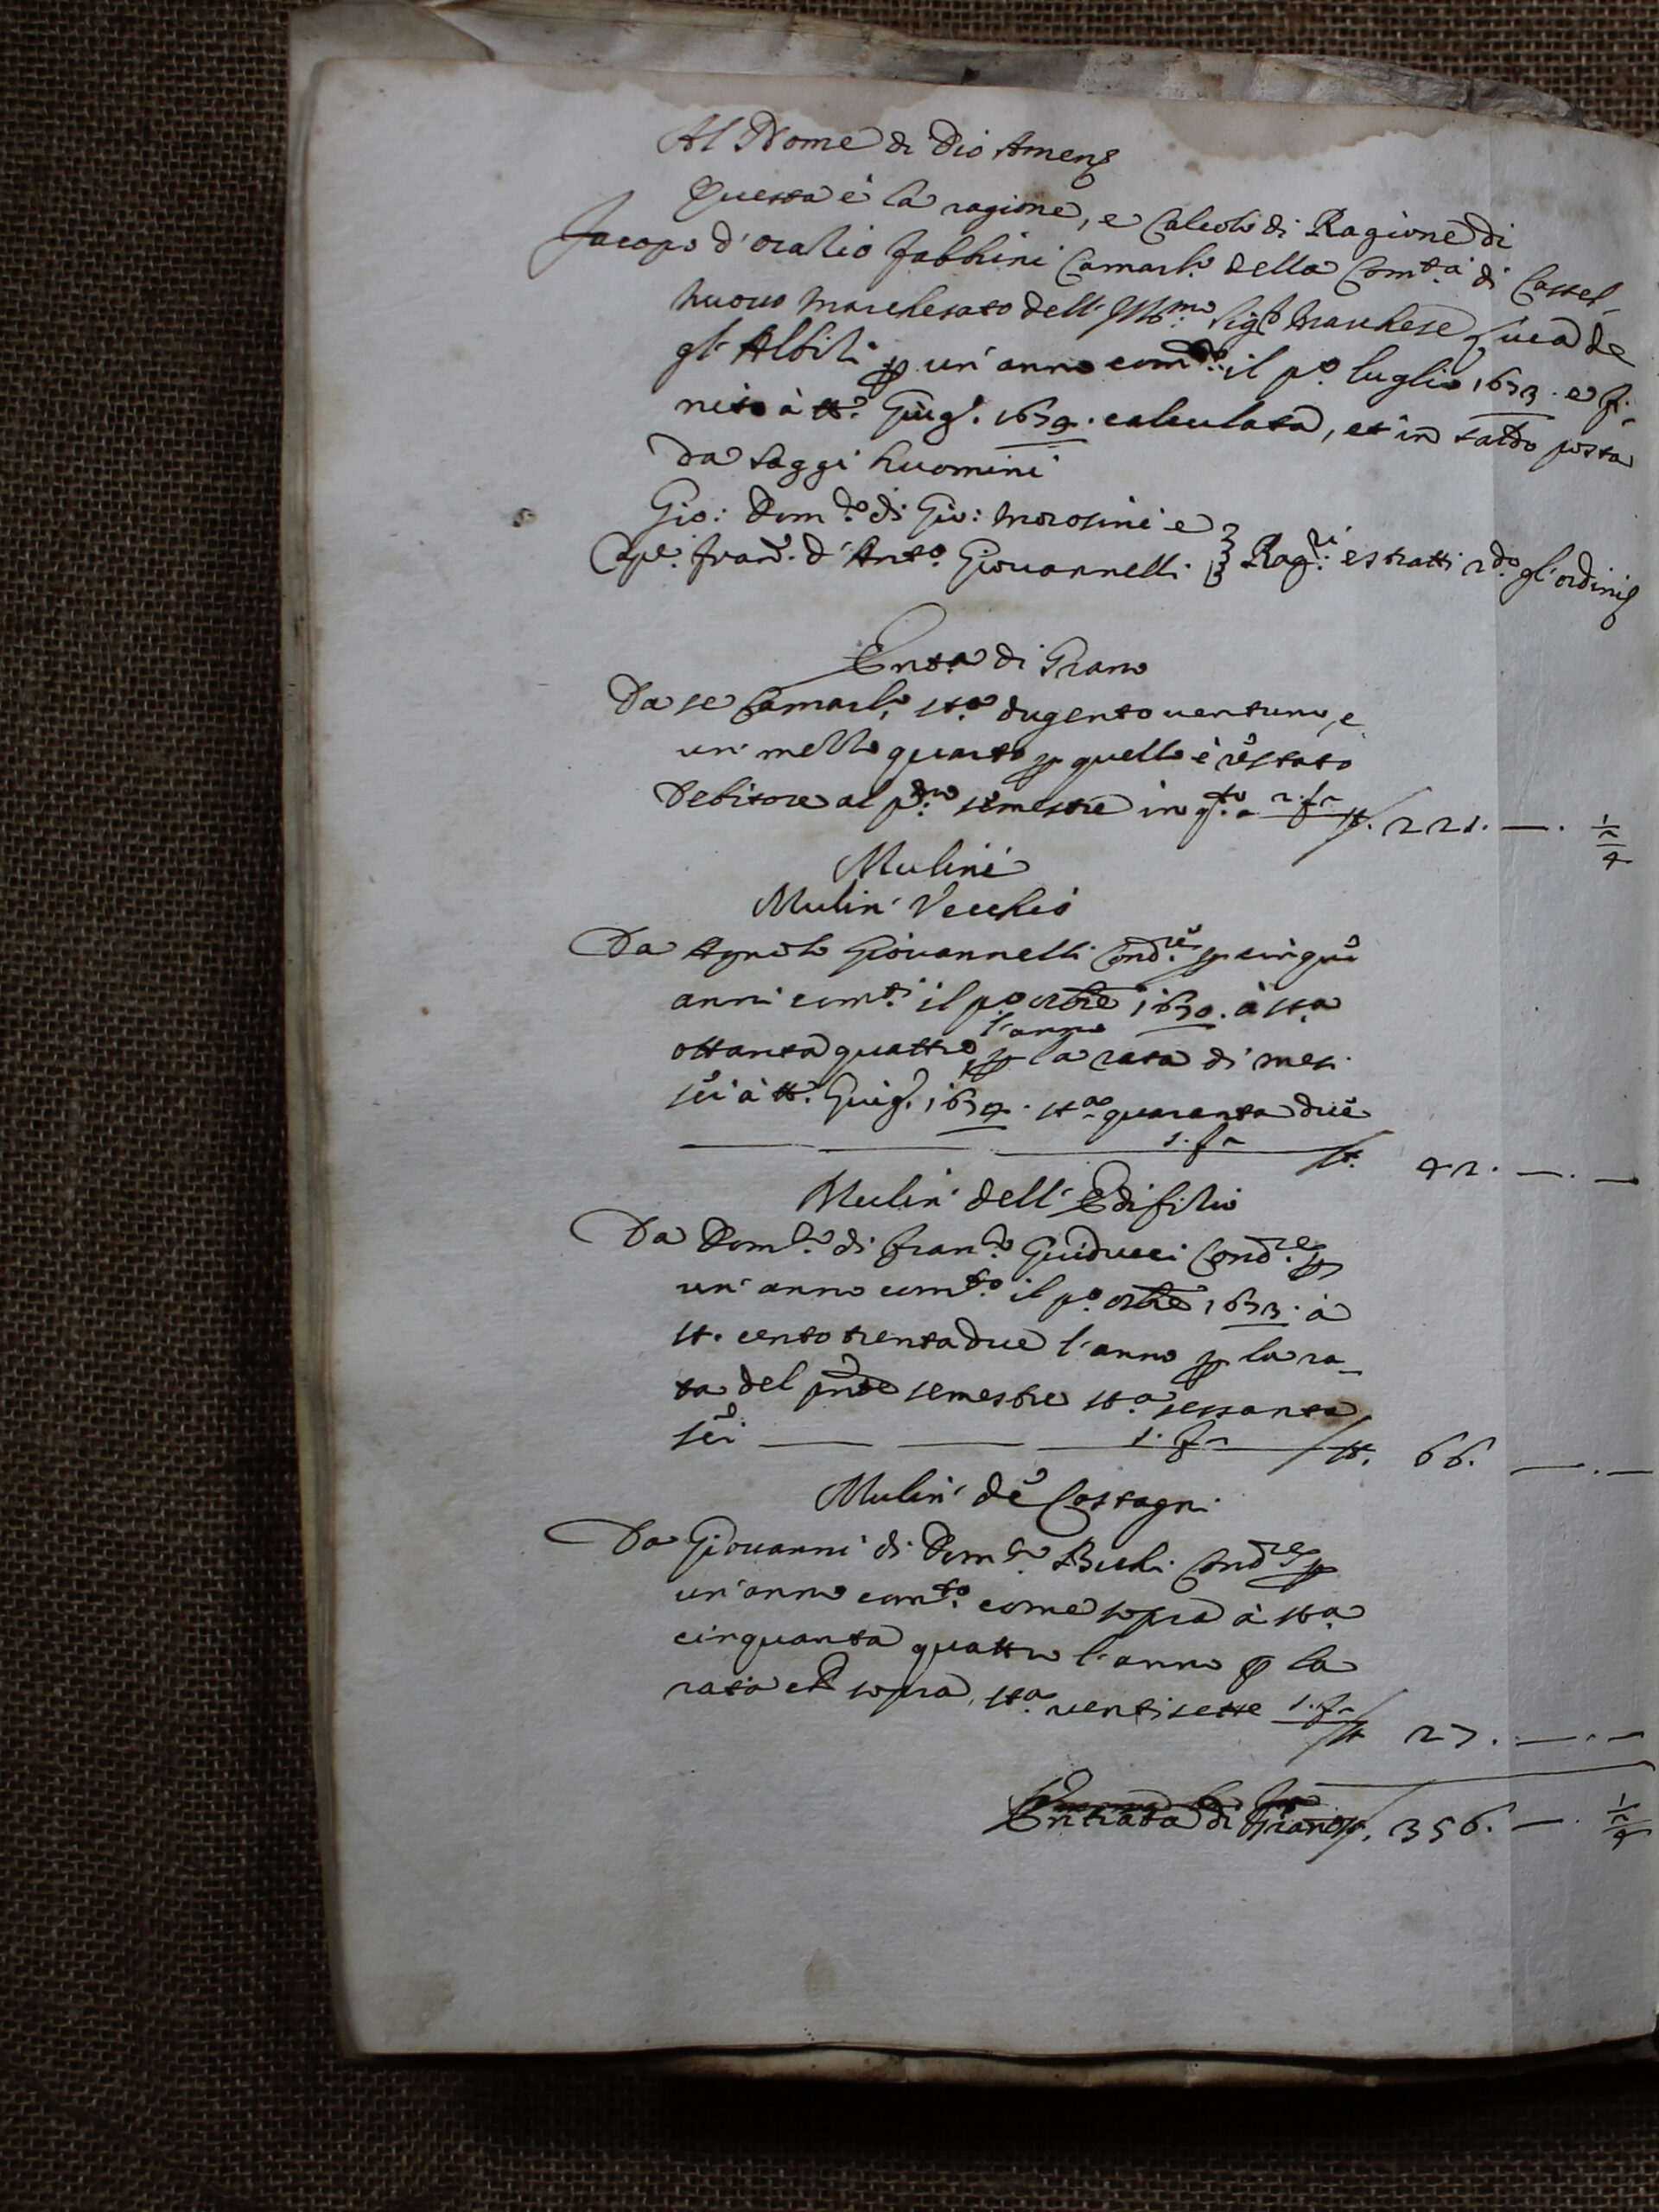 Al Nome di Dio Amen
Questa è la ragione, e Calcolo di Ragione di
Jacopo d'Orazio Fabbrini Camarl.º della Com.tà di Castel
nuovo Marchesato dell'Ill.mo Sig.r Marchese Luca de
gl'Albizi p un'anno com.to il p.º luglio 1633. e fi
nito à tt.º Giug.º 1634. calculata, et in saldo posta
da saggi huomini
Gio: Dom.co di Gio: Morosini e
Cap.º Fran.º d'Ant.º Giovannelli Rag.ri estratti s.do gl'ordini
Ent.a di Grano
Da se Camarl.º st.a dugento ventuno, e
un mezzo quarto p quello è restato
debitore al p.mo semestre in q.to a 2. f 2 st. 221. —. 1/2/4
Mulini
Mulin' Vecchio
Da Agnolo Giovannelli Cond.re p cinque
anni com.ti il p.º ottbre 1630. à st.a
ottanta quattro l'anno p la rata di mesi
sei à tt.º Giug.º 1634. st.a quaranta due
1. f 2 st. 42. —. —
Mulin' dell'Edifizio
Da Dom.co di Fran.co Guiducci Cond.re p
un'anno com.to il p.º ottbre 1633. à
st. cento trentadue l'anno p la ra
ta del pnte semestre st.a sessanta
sei 1. f 2 st. 66. —. —
Mulin' de Castagni
Da Giovanni di Dom.co Buchi Cond.re p
un'anno com.to come sopra à st.a
cinquanta quattro l'anno p la
rata che sopra, st.a ventisette 1. f 2 st 27. —. —
Entrata di Grano st. 356. —. 1/2/4